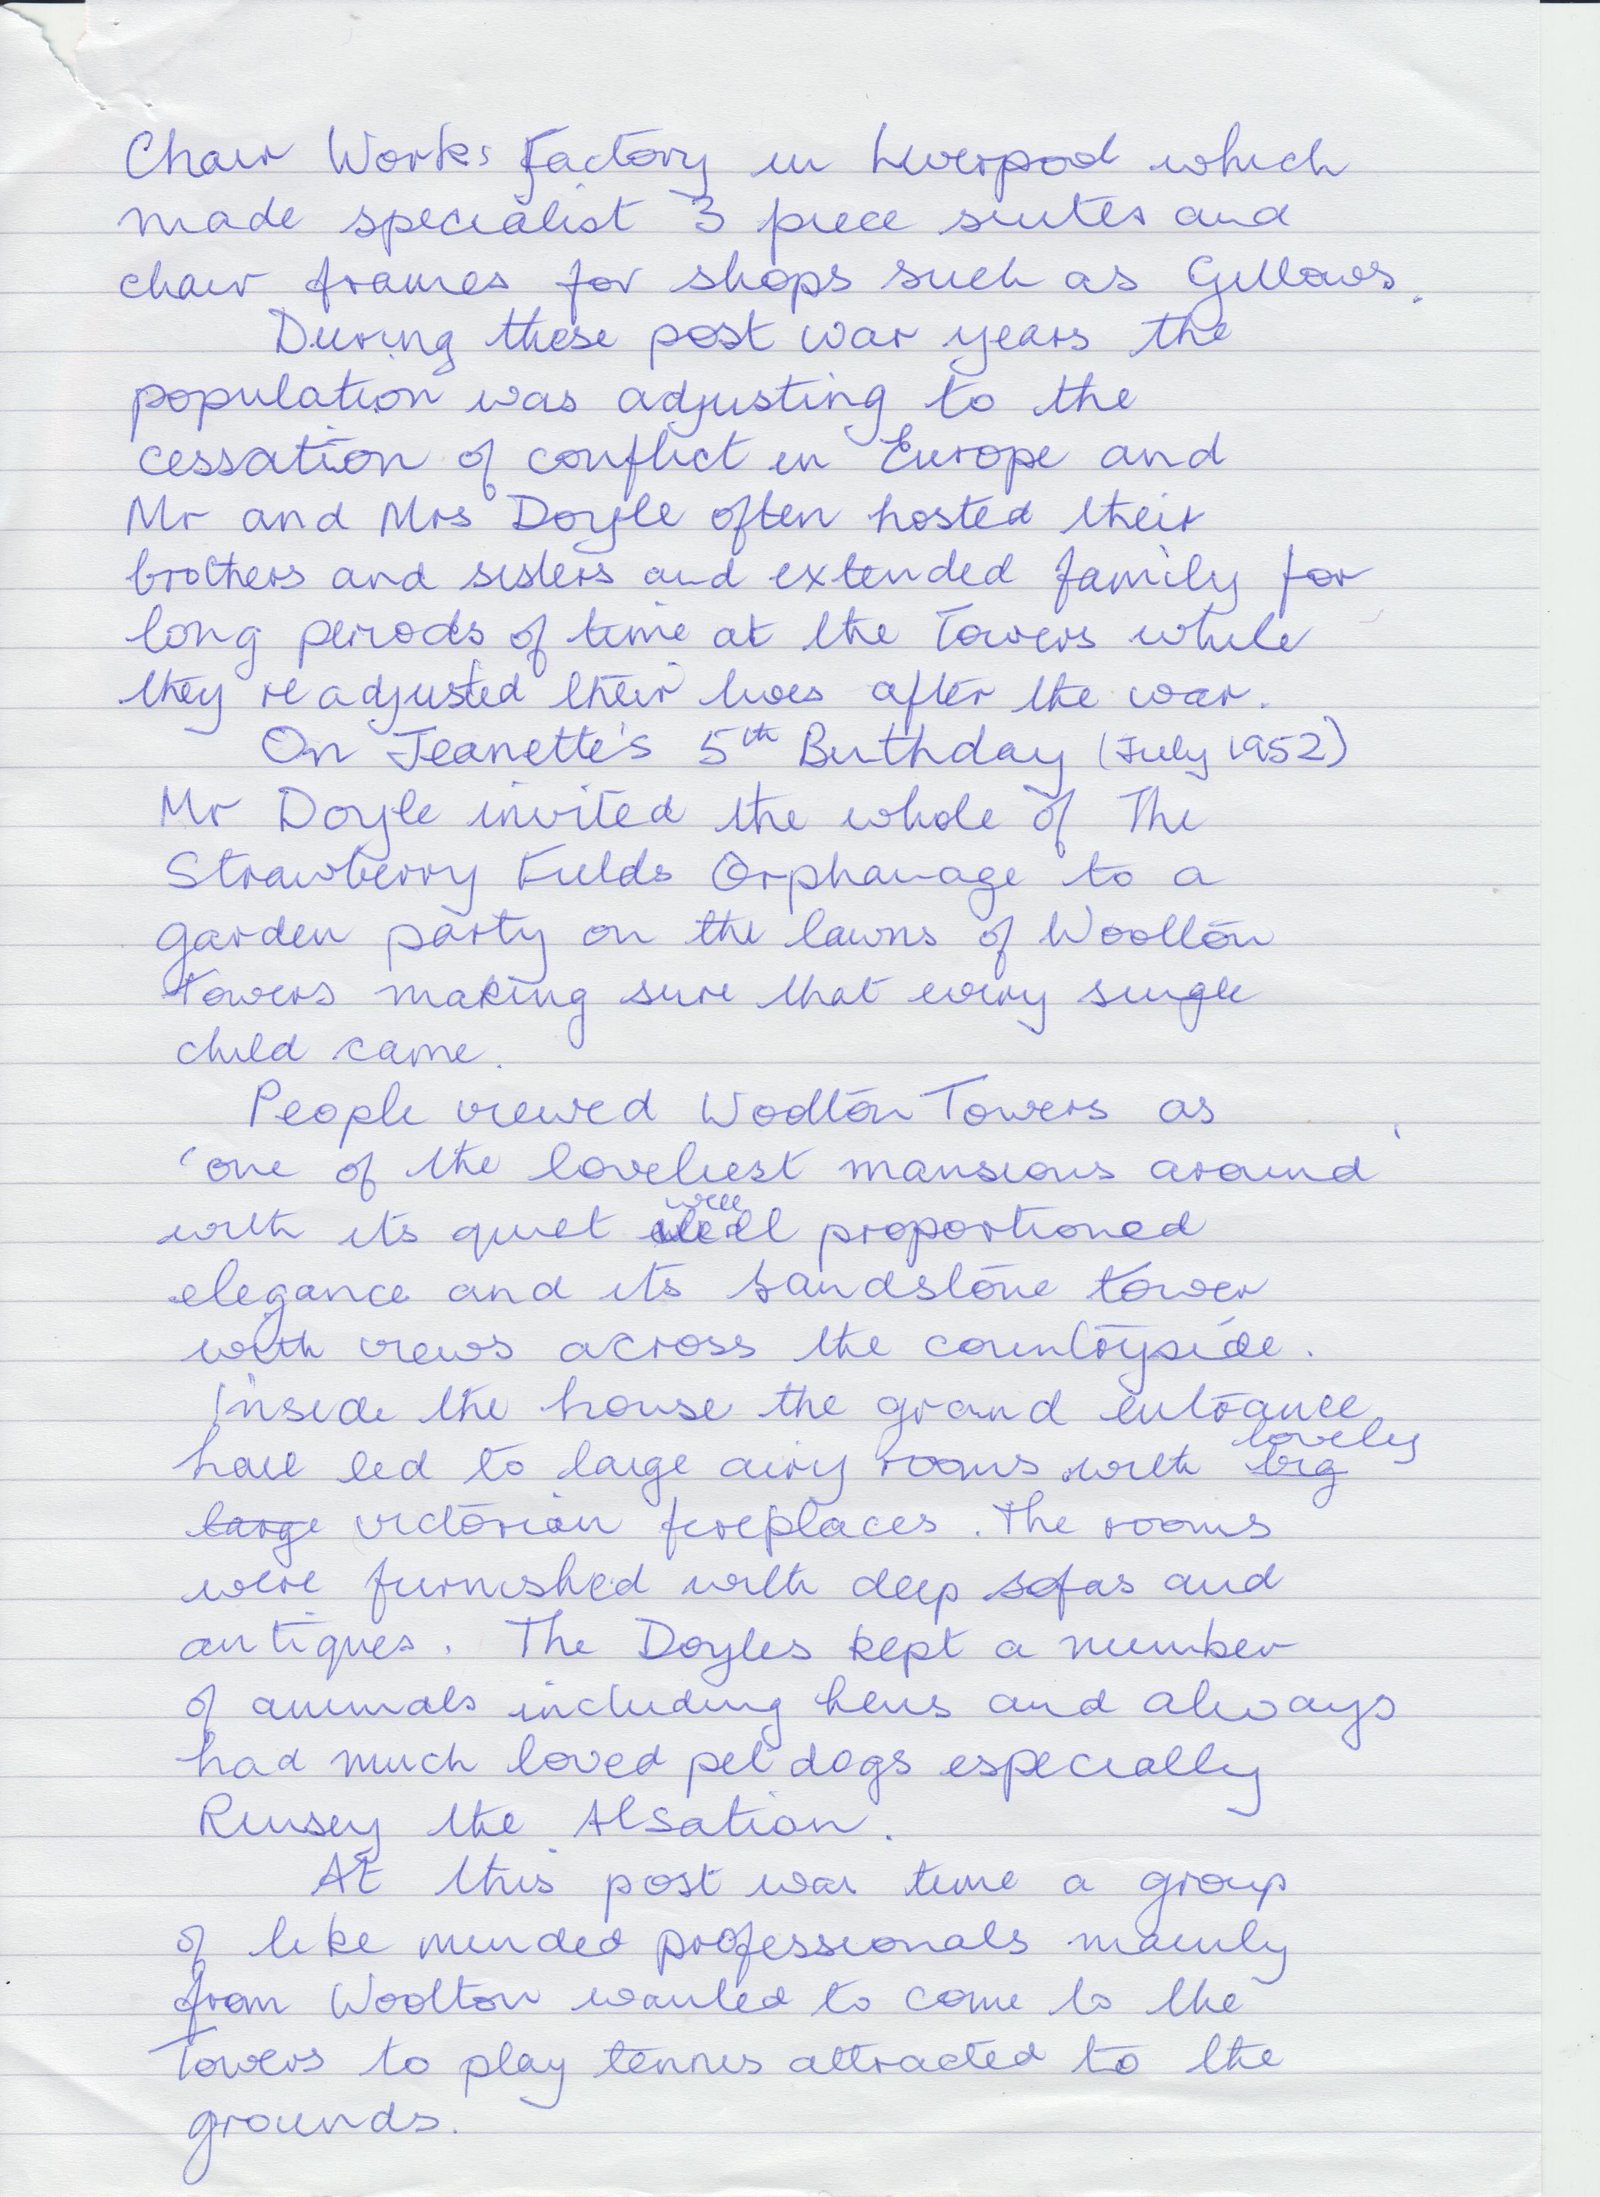 Chair Works Factory in Liverpool which
made specialist 3 piece suites and
chair frames for shops such as Gillows.
During these post war years the
population was adjusting to the
cessation of conflict in Europe and
Mr and Mrs Doyle often hosted their
brothers and sisters and extended family for
long periods of time at the Towers while
they readjusted their lives after the war.
On Jeanette's 5th Birthday (July 1952)
Mr Doyle invited the whole of The
Strawberry Fields Orphanage to a
garden party on the lawns of Woolton
Towers making sure that every single
child came.
People viewed Woolton Towers as
'one of the loveliest mansions around'
with its quiet well proportioned
elegance and its sandstone tower
with views across the countryside.
Inside the house the grand entrance
lovely
hall led to large airy rooms with big
large victorian fireplaces. The rooms
were furnished with deep sofas and
antiques. The Doyles kept a number
of animals including hens and always
had much loved pet dogs especially
the Alsation.
At this post war time a group
of like minded professionals mainly
from Woolton wanted to come to the
Towers to play tennis attracted to the
grounds.